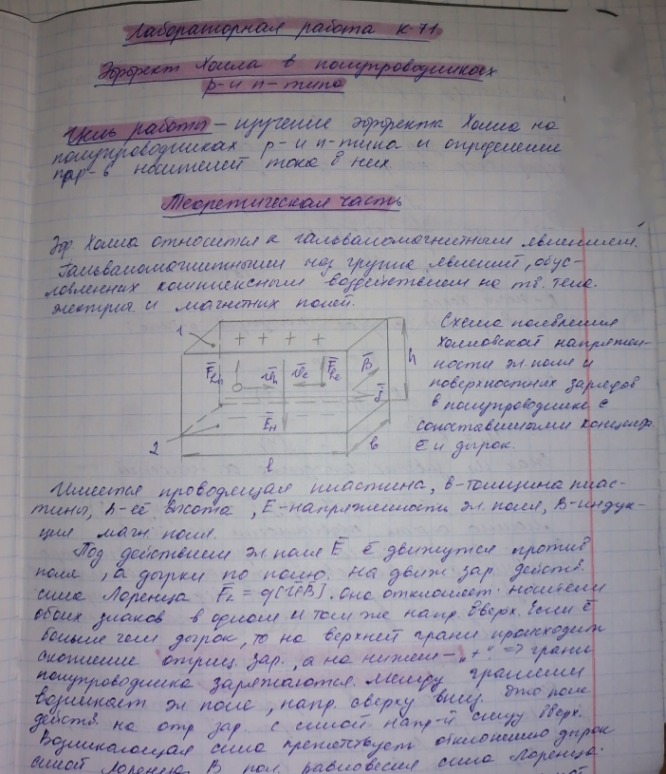 Лабораторная работа К-71
Эффект Холла в полупроводниках
p- и n- типа
Цель работы - изучение эффекта Холла на
полупроводниках p- и n-типа и определение
пар-в носителей тока в них.
Теоретическая часть
Эф. Холла относится к гальваномагнитным явлениям.
Гальваномагнитными наз группа явлений, обус-
ловленных комплексным воздействием на тв. тела.
электрич. и магнитных полей.
1
+ + + +
F̄Lp v̄p v̄e F̄Le B̄ h
j̄
ĒH
2
b
l
Схема появления
Холловской напряжен-
ности эл. поля и
поверхностных зарядов
в полупроводнике с
сопоставимыми концентр.
ē и дырок.
Имеется проводящая пластина, b-толщина плас-
тины, h-её высота, E-напряженность эл. поля, B-индук-
ция магн поля.
Под действием эл поля Ē ē движутся против
поля, а дырки по полю. На движ зар. действ.
сила Лоренца FL = q[ῡB̄]. Она отклоняет носители
обоих знаков в одном и том же напр. вверх. Если ē
больше чем дырок, то на верхней грани происходит
скопление отриц. зар., а на нижней - „+" => грани
полупроводника заряжаются. Между гранями
возникает эл поле, напр. сверху вниз. Это поле
действ. на отр зар. с силой напр-й снизу вверх.
Возникающая сила препятствует отклонению дырок
силой Лоренца. В пол. равновесия сила Лоренца.